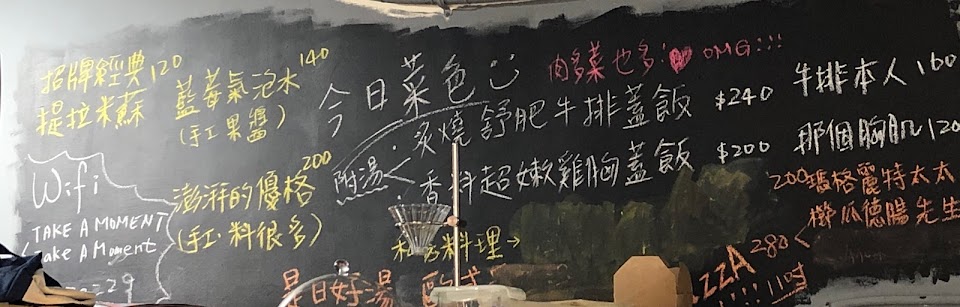 招牌經典 120
提拉米蘇
藍莓氣泡水 140
(手工果醬)
Wifi
TAKE A MOMENT
Take A Moment
澎湃的優格 200
(手工.料很多)
今日菜色
肉多菜也多! OMG!!!
附湯
炙燒舒肥牛排蓋飯 $240
香料超嫩雞胸蓋飯 $200
牛排本人 160
那個胸肌 120
200 瑪格麗特太太
櫛瓜德腸先生
280
!!!! 11吋
料理→
是日好湯